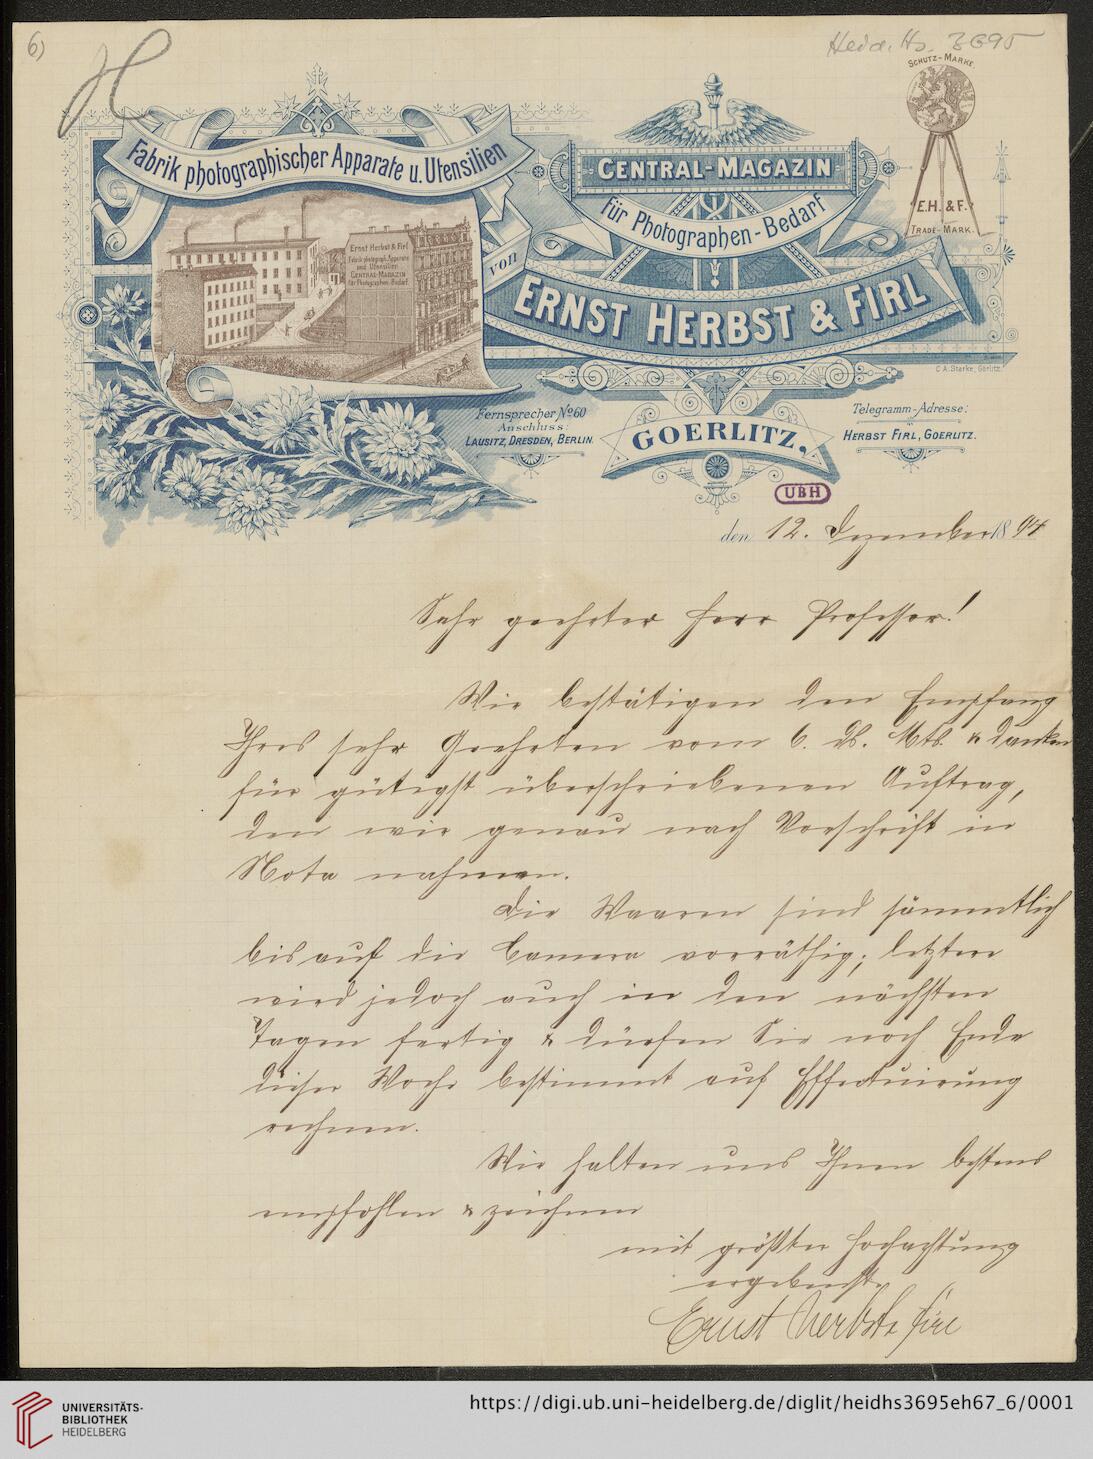 6)
H
Heid. Hs. 3695
SCHUTZ-MARKE.
Fabrik photographischer Apparate u. Utensilien
CENTRAL-MAGAZIN
für Photographen-Bedarf
E.H. & F.
TRADE-MARK.
Ernst Herbst & Firl
Fabrik photograph. Apparate
und Utensilien
CENTRAL-MAGAZIN
für Photographen-Bedarf.
von
ERNST HERBST & FIRL
C.A. Starke, Görlitz.
Fernsprecher No 60
Anschluss:
LAUSITZ, DRESDEN, BERLIN.
GOERLITZ.
Telegramm-Adresse:
HERBST FIRL, GOERLITZ.
UBH
den 12. Dezember 1894
Sehr geehrter Herr Professor!
Wir bestätigen den Empfang
Ihres sehr Geehrten vom 6. ds. Mts. & danken
für gütigst überschriebenen Auftrag,
den wir genau nach Vorschrift in
Nota nahmen.
Die Waaren sind sämmtlich
bis auf die Camera vorräthig; letztere
wird jedoch auch in den nächsten
Tagen fertig & dürfen Sie noch Ende
dieser Woche bestimmt auf Effectuirung
rechnen.
Wir halten uns Ihnen bestens
empfohlen & zeichnen
mit größter Hochachtung
ergebenst
Ernst Herbst & Firl
UNIVERSITÄTS-
BIBLIOTHEK
HEIDELBERG
https://digi.ub.uni-heidelberg.de/diglit/heidhs3695eh67_6/0001